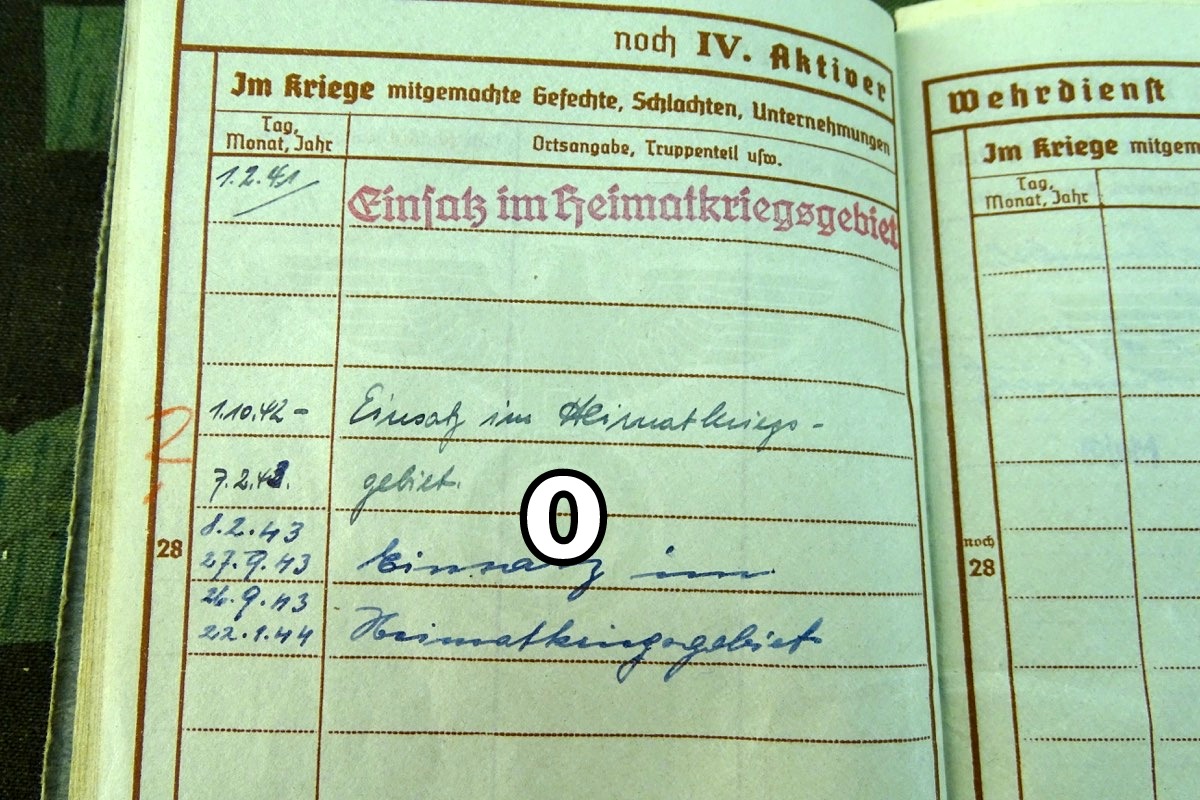 noch IV. Aktiver
Im Kriege mitgemachte Gefechte, Schlachten, Unternehmungen
Tag,
Monat, Jahr
Ortsangabe, Truppenteil usw.
1.2.41
Einsatz im Heimatkriegsgebiet
1.10.42 -
Einsatz im Heimatkriegs-
7.2.43.
gebiet.
8.2.43
27.9.43
Einsatz im
28
26.9.43
22.1.44
Heimatkriegsgebiet
0
Wehrdienst
Im Kriege mitgem
Tag,
Monat, Jahr
noch
28